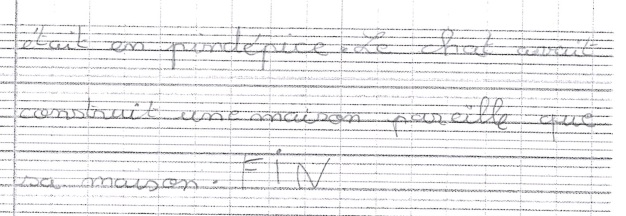 était en pindépice. Le chat avait
construit une maison pareille que
sa maison. FiN